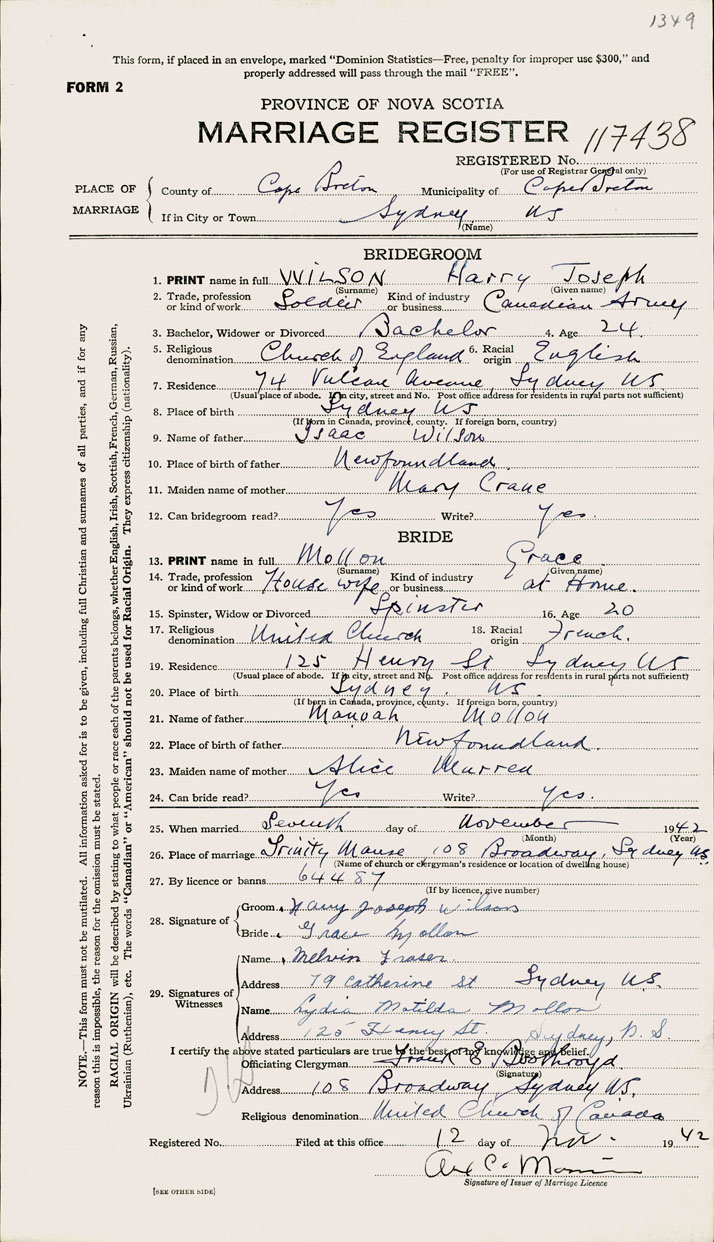 1349
This form, if placed in an envelope, marked "Dominion Statistics—Free, penalty for improper use $300," and
properly addressed will pass through the mail "FREE".
FORM 2
PROVINCE OF NOVA SCOTIA
MARRIAGE REGISTER 117438
REGISTERED No.
(For use of Registrar General only)
PLACE OF MARRIAGE
County of Cape Breton Municipality of Cape Breton
If in City or Town Sydney NS
(Name)
BRIDEGROOM
1. PRINT name in full WILSON Harry Joseph
(Surname) (Given name)
2. Trade, profession or kind of work Soldier Kind of industry or business Canadian Army
3. Bachelor, Widower or Divorced Bachelor 4. Age 24
5. Religious denomination Church of England 6. Racial origin English
7. Residence 74 Vulcan Avenue, Sydney NS
(Usual place of abode. If in city, street and No. Post office address for residents in rural parts not sufficient)
8. Place of birth Sydney NS
(If born in Canada, province, county. If foreign born, country)
9. Name of father Isaac Wilson
10. Place of birth of father Newfoundland
11. Maiden name of mother Mary Crane
12. Can bridegroom read? Yes Write? Yes.
BRIDE
13. PRINT name in full Mollon Grace
(Surname) (Given name)
14. Trade, profession or kind of work House wife Kind of industry or business at Home.
15. Spinster, Widow or Divorced Spinster 16. Age 20
17. Religious denomination United Church 18. Racial origin French.
19. Residence 125 Henry St Sydney NS
(Usual place of abode. If in city, street and No. Post office address for residents in rural parts not sufficient)
20. Place of birth Sydney. NS.
(If born in Canada, province, county. If foreign born, country)
21. Name of father Manoah Mollon
22. Place of birth of father Newfoundland.
23. Maiden name of mother Alice
24. Can bride read? Yes Write? Yes.
25. When married Seventh day of November 1942
(Month) (Year)
26. Place of marriage Trinity Manse 108 Broadway, Sydney NS.
(Name of church or clergyman's residence or location of dwelling house)
27. By licence or banns 64487
(If by licence, give number)
28. Signature of
Groom Harry Joseph Wilson
Bride Grace Mollon
29. Signatures of Witnesses
Name Melvin Fraser.
Address 79 Catherine St Sydney NS.
Name Lydia Matilda Mollon
Address 125 Henry St. Sydney, N.S.
I certify the above stated particulars are true to the best of my knowledge and belief.
Officiating Clergyman Frank E Boothroyd
(Signature)
Address 108 Broadway Sydney NS.
Religious denomination United Church of Canada
Registered No. Filed at this office 12 day of Nov. 1942
Signature of Issuer of Marriage Licence
[SEE OTHER SIDE]
NOTE.—This form must not be mutilated. All information asked for is to be given, including full Christian and surnames of all parties, and if for any
reason this is impossible, the reason for the omission must be stated.
RACIAL ORIGIN will be described by stating to what people or race each of the parents belongs, whether English, Irish, Scottish, French, German, Russian,
Ukrainian (Ruthenian), etc. The words "Canadian" or "American" should not be used for Racial Origin. They express citizenship (nationality).